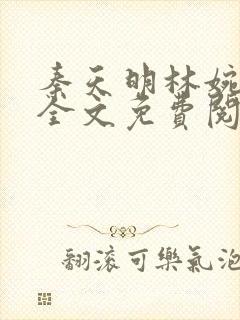 秦天明林婉
全文免費閱
翻滾可樂氣泡